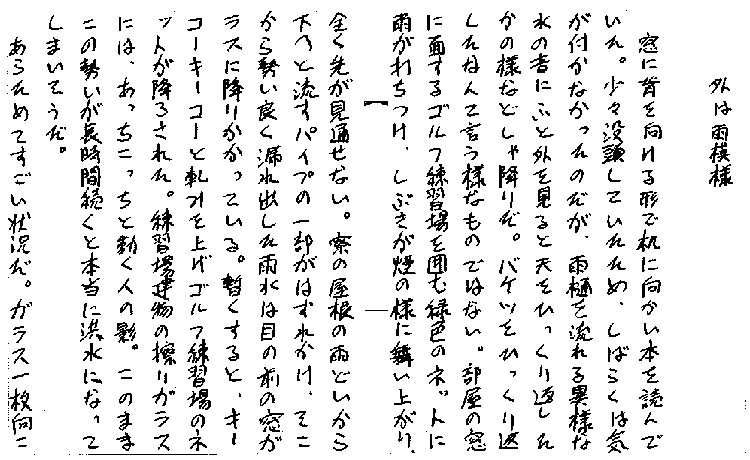 外は雨模様
窓に背を向ける形で机に向かい本を読んで
いた。少々没頭していたため、しばらくは気
が付かなかったのだが、雨樋を流れる異様な
水の音にふと外を見ると天をひっくり返した
かの様などしゃ降りだ。バケツをひっくり返
したなんて言う様なものではない。部屋の窓
に面するゴルフ練習場を囲む緑色のネットに
雨が打ちつけ、しぶきが煙の様に舞い上がり、
全く先が見通せない。寮の屋根の雨どいから
下へと流すパイプの一部がはずれかけ、そこ
から勢い良く漏れ出した雨水は目の前の窓ガ
ラスに降りかかっている。暫くすると、キー
コーキーコーと軋みを上げゴルフ練習場のネ
ットが降ろされた。練習場建物の擦りガラス
には、あっちこっちと動く人の影。このまま
この勢いが長時間続くと本当に洪水になって
しまいそうだ。
あらためてすごい状況だ。ガラス一枚向こ